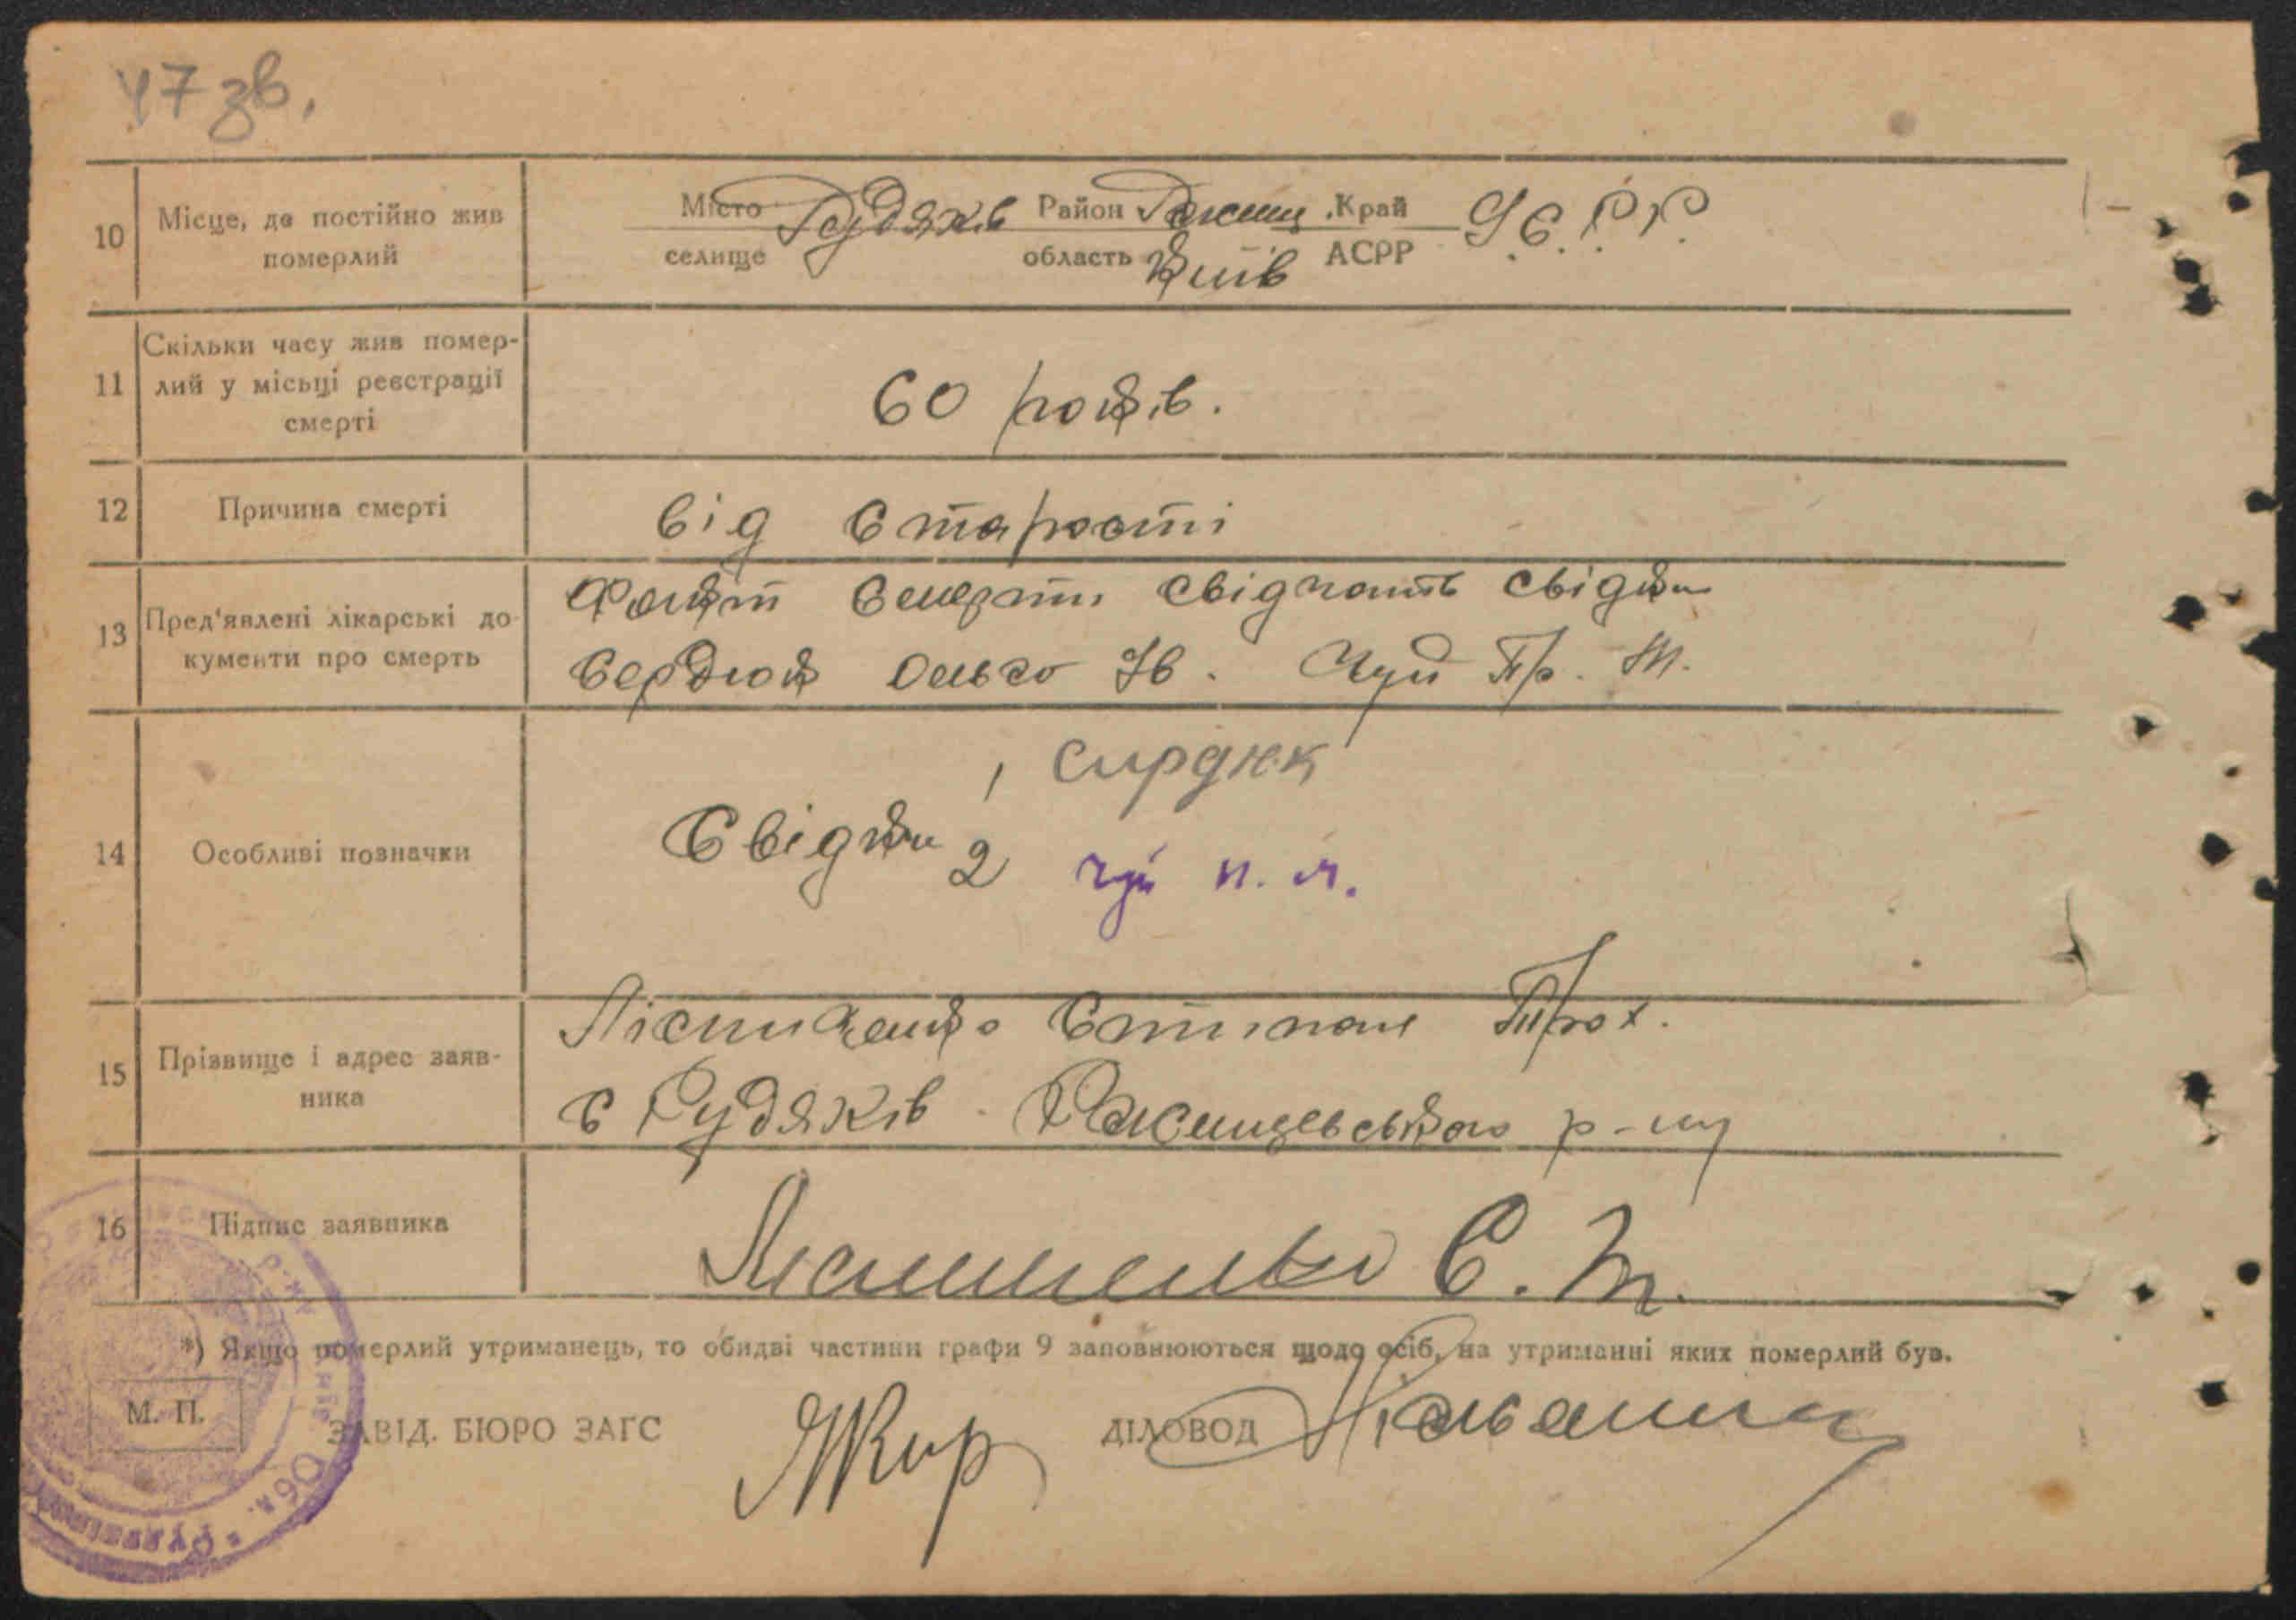 47 зв.
10 Місце, де постійно жив померлий
Місто Рудяків Район Ржищ. Край У.С.Р.Р.
селище область Київ АСРР
11 Скільки часу жив помер-
лий у місьці реєстрації
смерті
60 років.
12 Причина смерті
від старості
13 Пред'явлені лікарські до-
кументи про смерть
Факт смерти свідчать свідки
Сердюк Ольго Ів. Чуй Пр. М.
14 Особливі позначки
Свідки
1 сирдюк
2 чуй п. м.
15 Прізвище і адрес заяв-
ника
Степан Трох.
с Рудяків Ржищевського р-ну
16 Підпис заявника
С. Т.
*) Якщо померлий утриманець, то обидві частини графи 9 заповнюються щодо осіб, на утриманні яких померлий був.
М. П.
ЗАВІД. БЮРО ЗАГС
ДІЛОВОД
Обл.